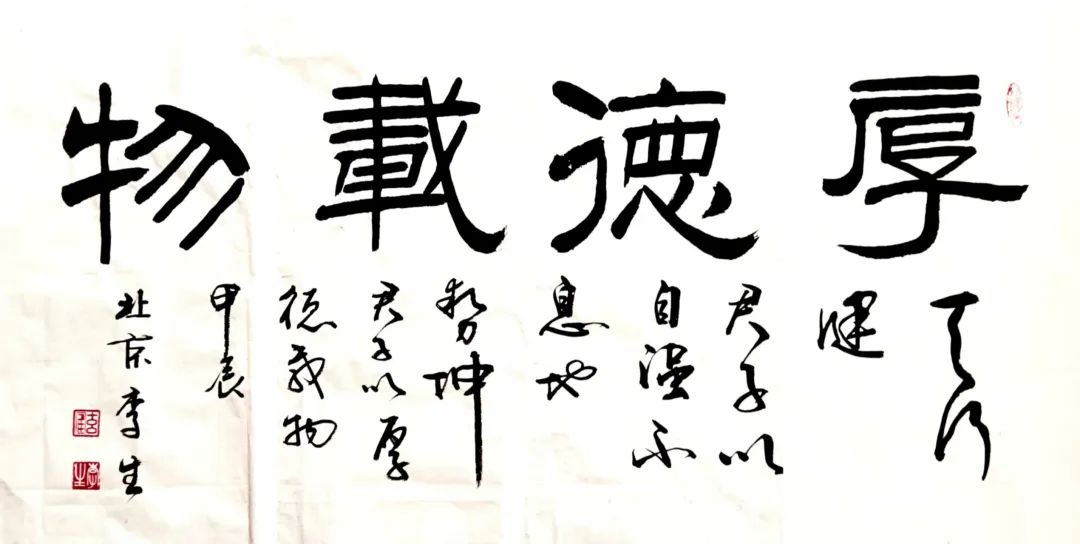 厚德載物
天行
健
君子以
自强不
息地
勢坤
君子以厚
德载物
甲辰
北京李生